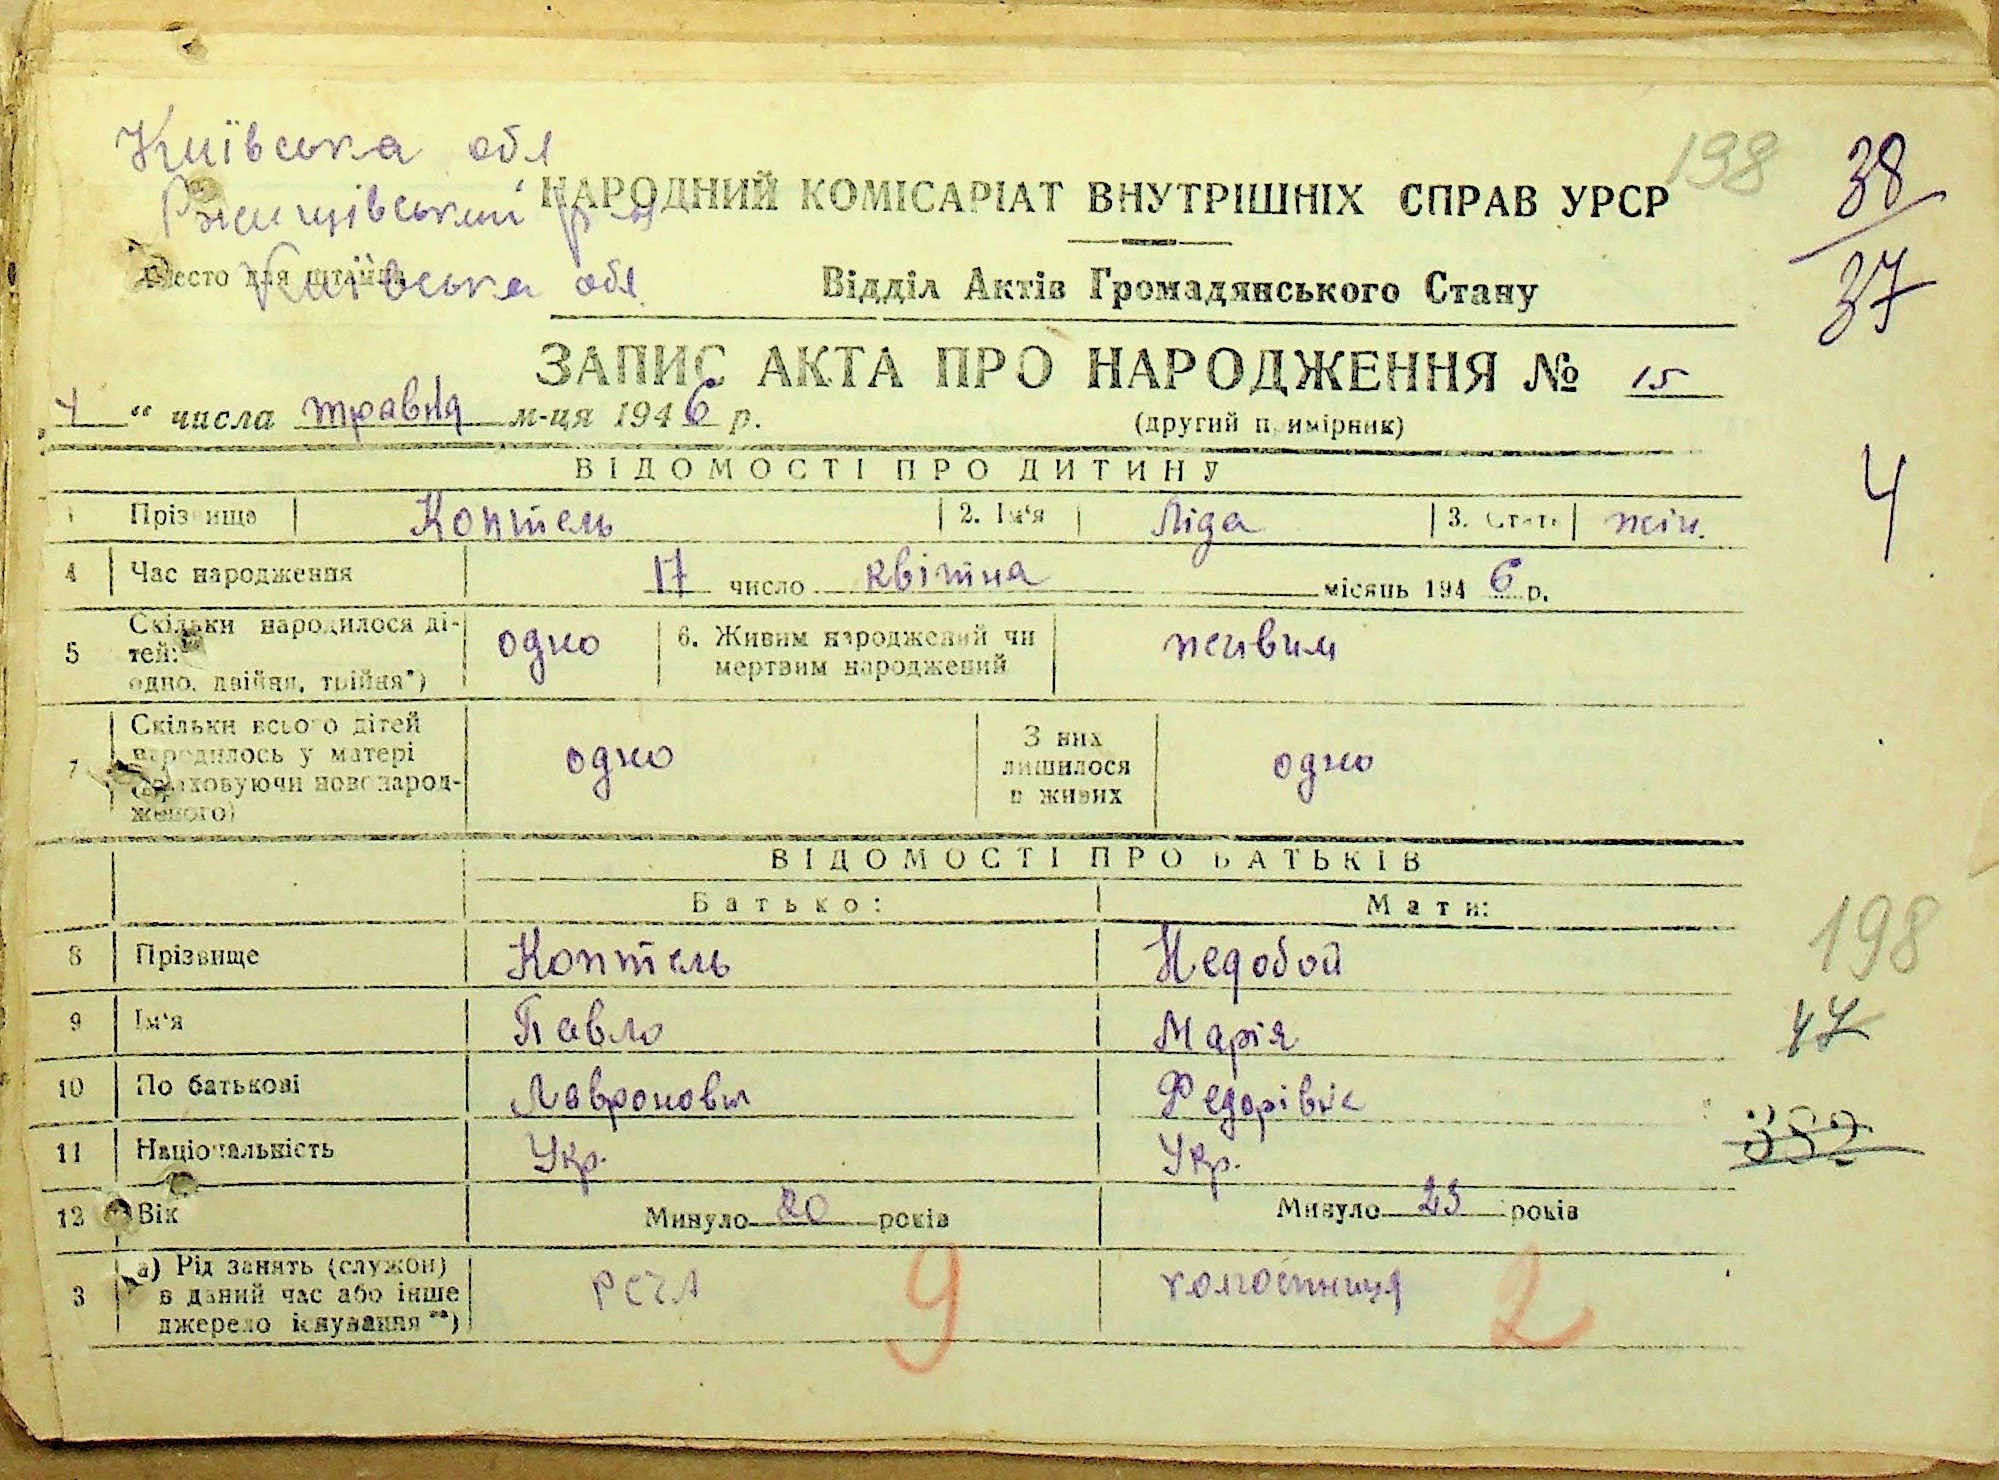 198
38
37
Київська обл
Ржищівський р-н
Київська обл.
НАРОДНИЙ КОМІСАРІАТ ВНУТРІШНІХ СПРАВ УРСР
Место для штампа
Відділ Актів Громадянського Стану
ЗАПИС АКТА ПРО НАРОДЖЕННЯ № 15
4 “ числа травня м-ця 1946 р.
(другий примірник)
4
ВІДОМОСТІ ПРО ДИТИНУ
1 Прізвище Коптель 2. Ім‘я Ліда 3. Стать жін.
4 Час народження 17 число квітня місяць 1946 р.
5 Скільки народилося ді-
тей:
одно, двійня, трійня*)
одно
6. Живим народжений чи
мертвим народжений
живим
7 Скільки всього дітей
народилось у матері
(враховуючи новонарод-
женого)
одно
З них
лишилося
в живих
одно
ВІДОМОСТІ ПРО БАТЬКІВ
Батько: Мати:
8 Прізвище Коптель Недобой
198
9 Ім‘я Павло Марія
10 По батькові Федорівна
11 Національність Укр. Укр.
352
12 Вік Минуло 20 років Минуло 23 років
3 а) Рід занять (служби)
в даний час або інше
джерело існування **)
РСЧА
9
колгоспниця
2